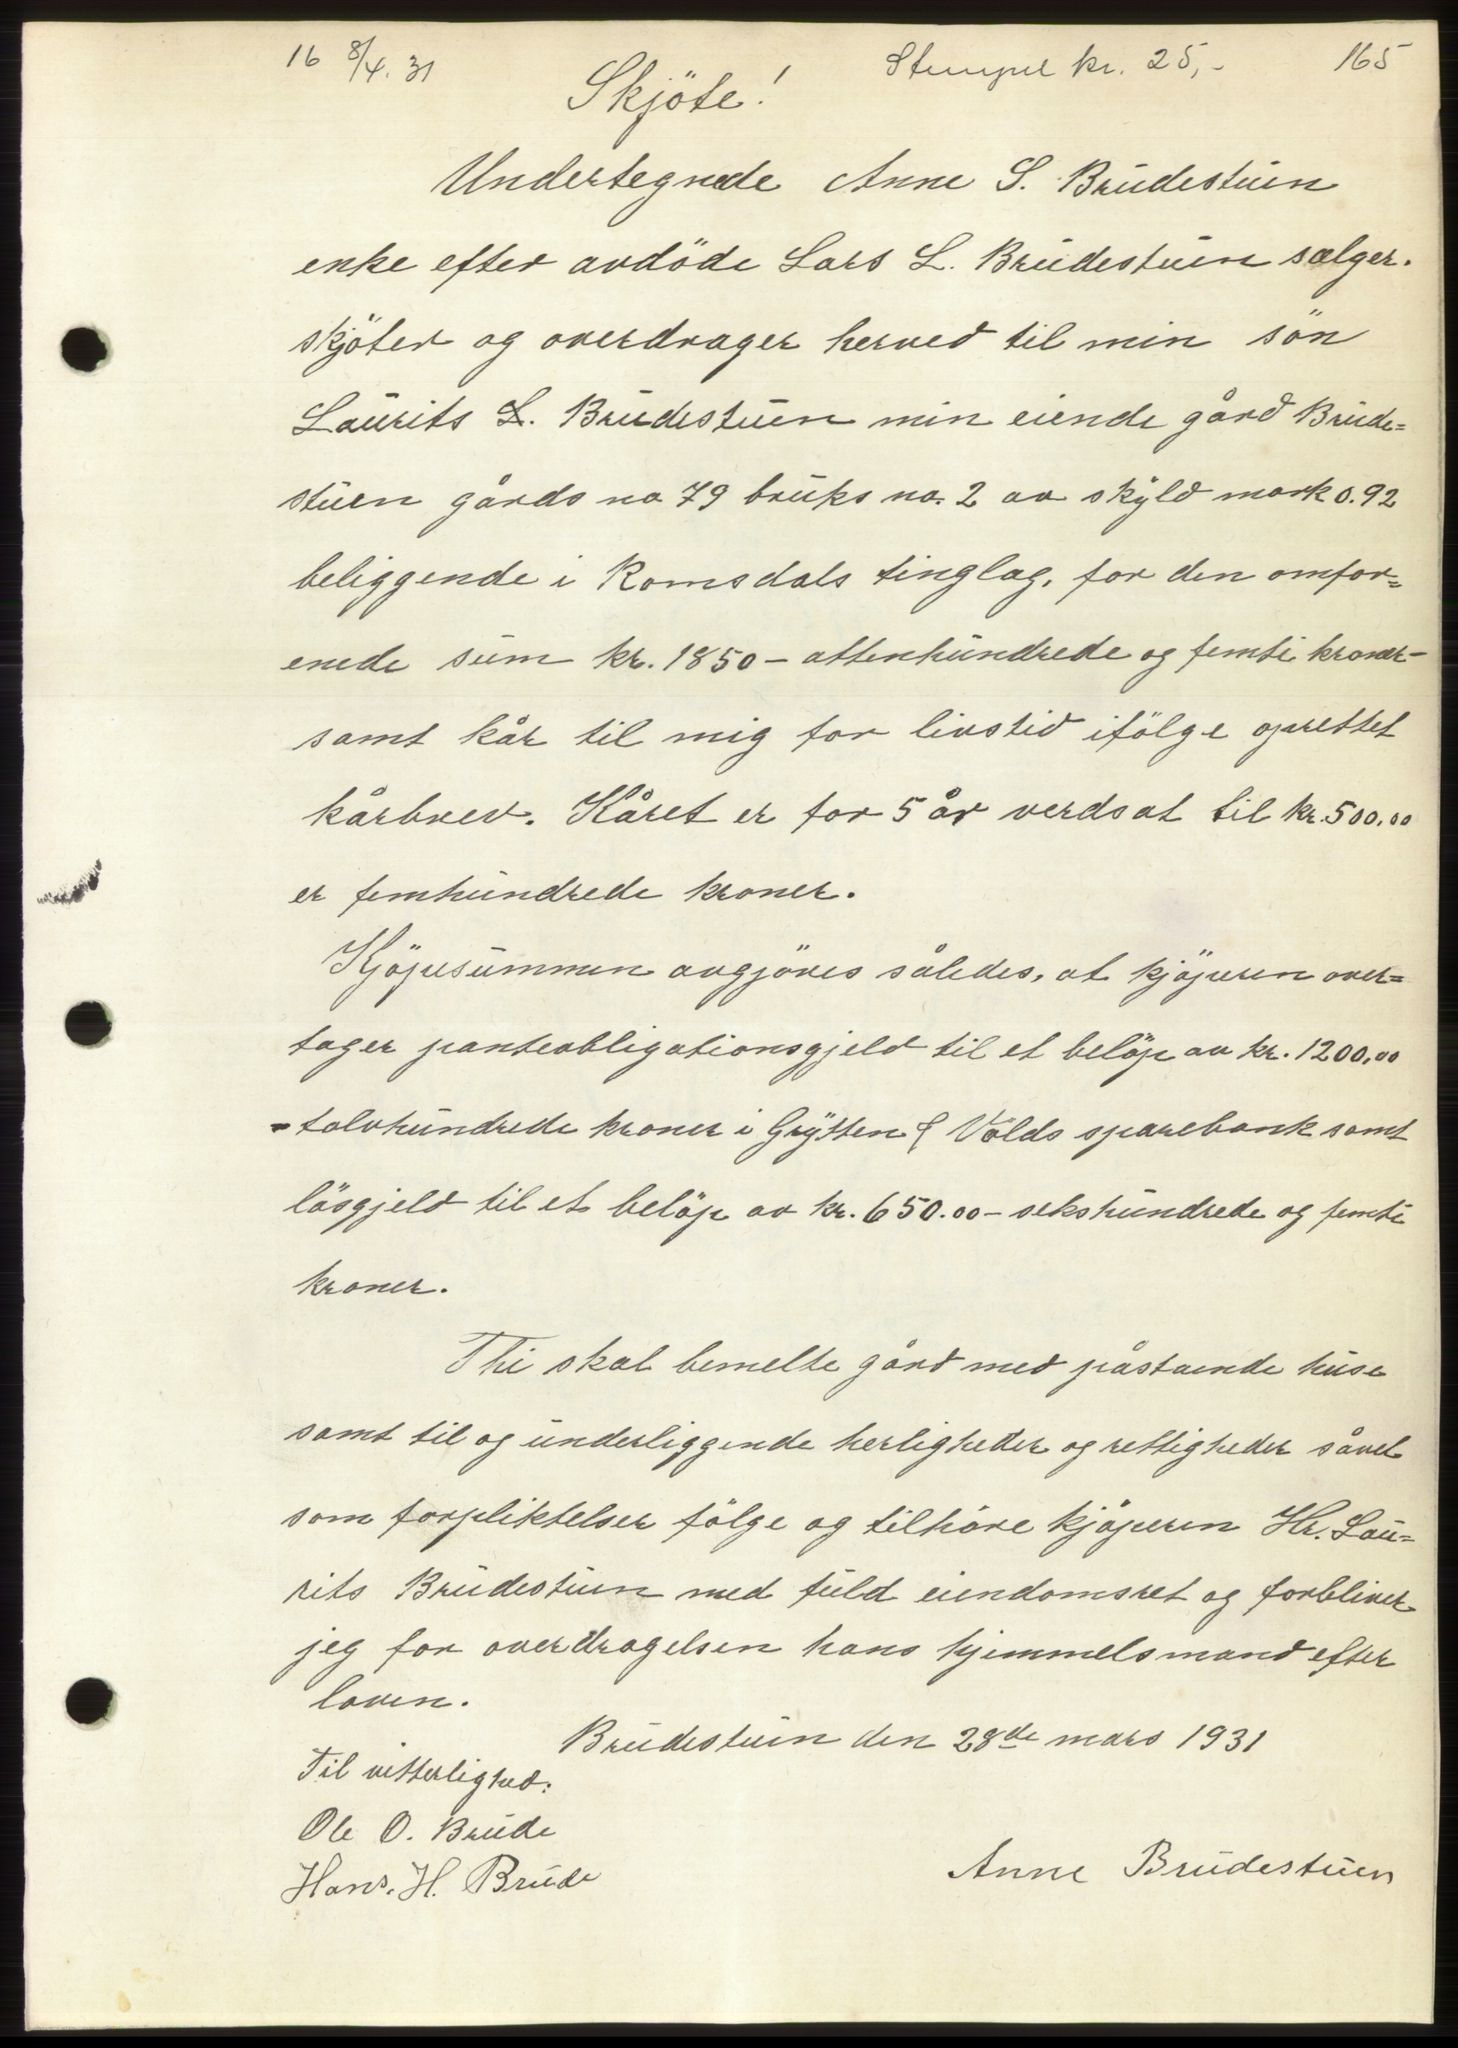 16 8/4.31
Stempel kr. 25,-
165
Skjöte!
Undertegnede Anne S. Brudestuen
enke efter avdöde Lars L. Brudestuen sælger.
skjöter og overdrager herved til min sön
Laurits L. Brudestuen min eiende gård Brude=
stuen gårds no 79 bruks no. 2 av skyld mark 0.92
beliggende i Romsdals tinglag, for den omfor=
enede sum kr. 1850 - attenhundrede og femti kroner -
samt kår til mig for livstid ifölge oprettet
kårbrev. Kåret er for 5 år verdsat til kr. 500.00
er femhundrede kroner.
Kjöpesummen avgjöres således, at kjöperen over=
tager panteobligationsgjeld til et belöp av kr. 1200.00
- tolvhundrede kroner i Grytten & Volds sparebank samt
lösgjeld til et belöp av kr. 650.00 - sekshundrede og femti
kroner.
Thi skal bemelte gård med påstaende huse
samt til og underliggende herligheder og rettigheder såvel
som forpliktelser fölge og tilhöre kjöperen Hr. Lau=
rits Brudestuen med fuld eiendomsret og forbliver
jeg for overdragelsen hans hjemmelsmand efter
loven.
Brudestuen den 28de mars 1931
Til vitterlighed:
Ole O. Brude
Hans. H. Brude
Anne Brudestuen